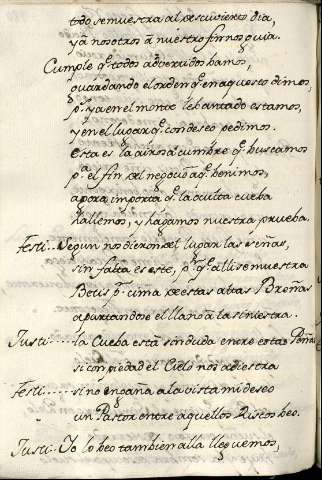 todo, se muestra al descuvierto dia,
y â nosotros â nuestro fin nos guia.
Cumple q̃ todos advertidos bamos,
guardando el orden q̃ en aquesto dimos,
ps. ya en el monte lebantado estamos,
y en el lugar q̃ con deseo pedimos.
esta es la airosa cumbre q̃ buscamos
pª. el fin del negocio âq̃ benimos,
agora importa q̃ la oculta cueba
hallemos, y hâgamos nuestra prueba.
Festi.. Segun nos dieron del lugar las señas,
sin falta es este, pr. q̃ alli se muestra
Betis pr. cima de estas altas Breñas
apartandose el llano â la siniestra.
Justi.... la Cueba està sin duda entre estas Peñas
si con piedad el Cielo nos adiestra
Festi..... si no engaña a la vista mi deseo
un Pastor entre aquellos Riscos beo.
Justi.. Yo lo beo tambien alla lleguemos,